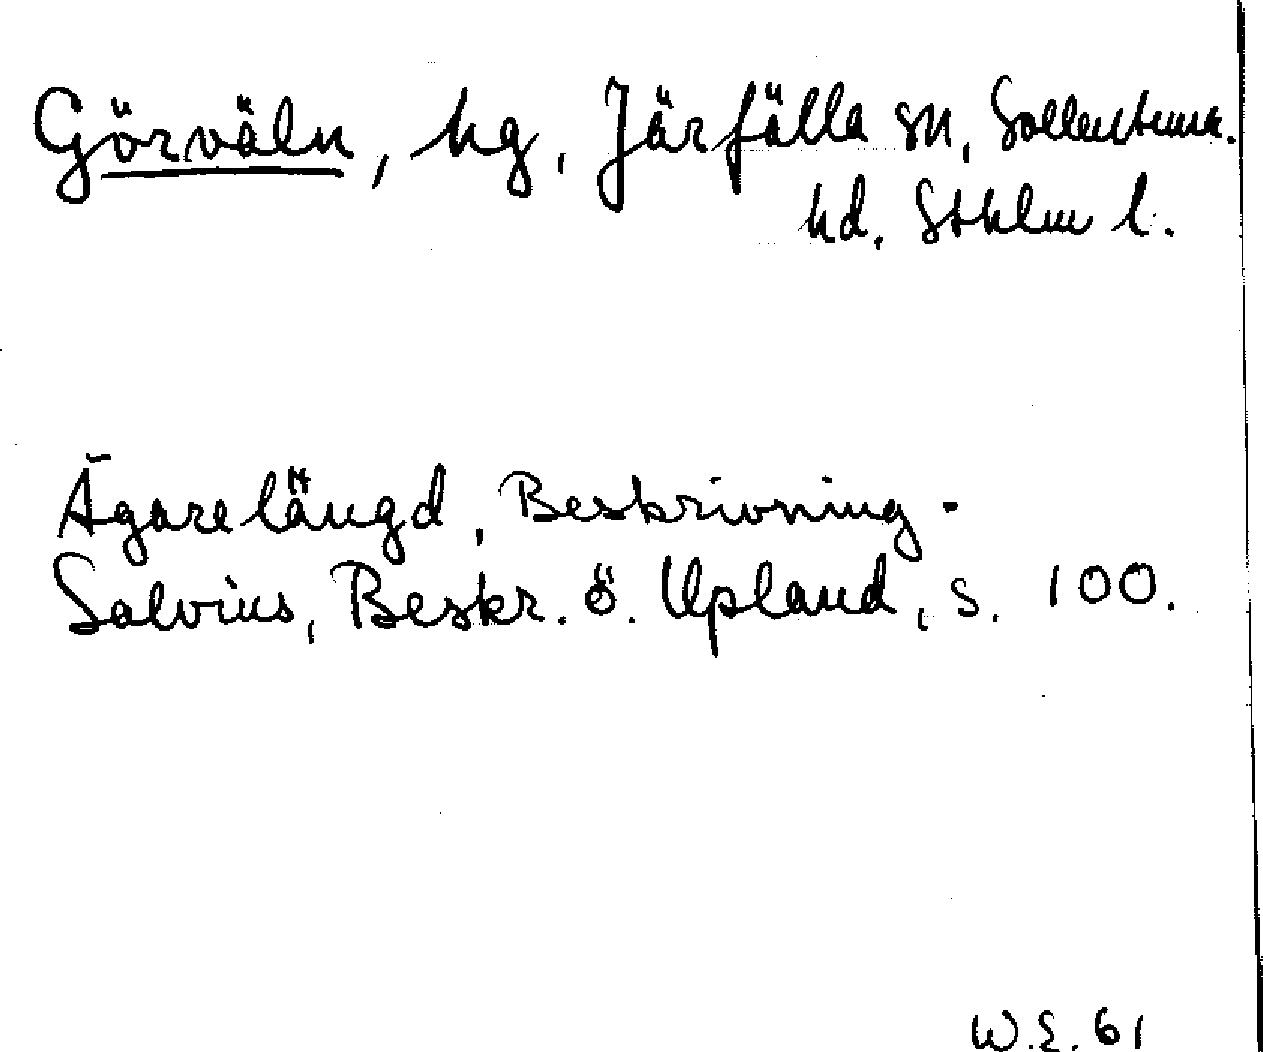 Görväln, hg, Järfälla sn, Sollentuna.
hd. Sthlm l.
Ägarelängd, Beskrivning.
Salvius, Beskr. ö. Upland, s. 100.
W.E. 61